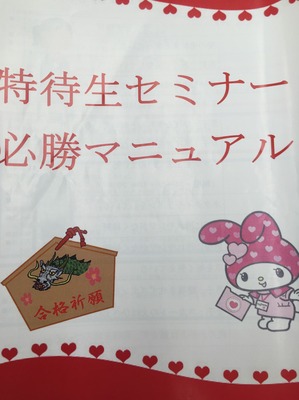 特待生セミナー
必勝マニュアル
合格祈願